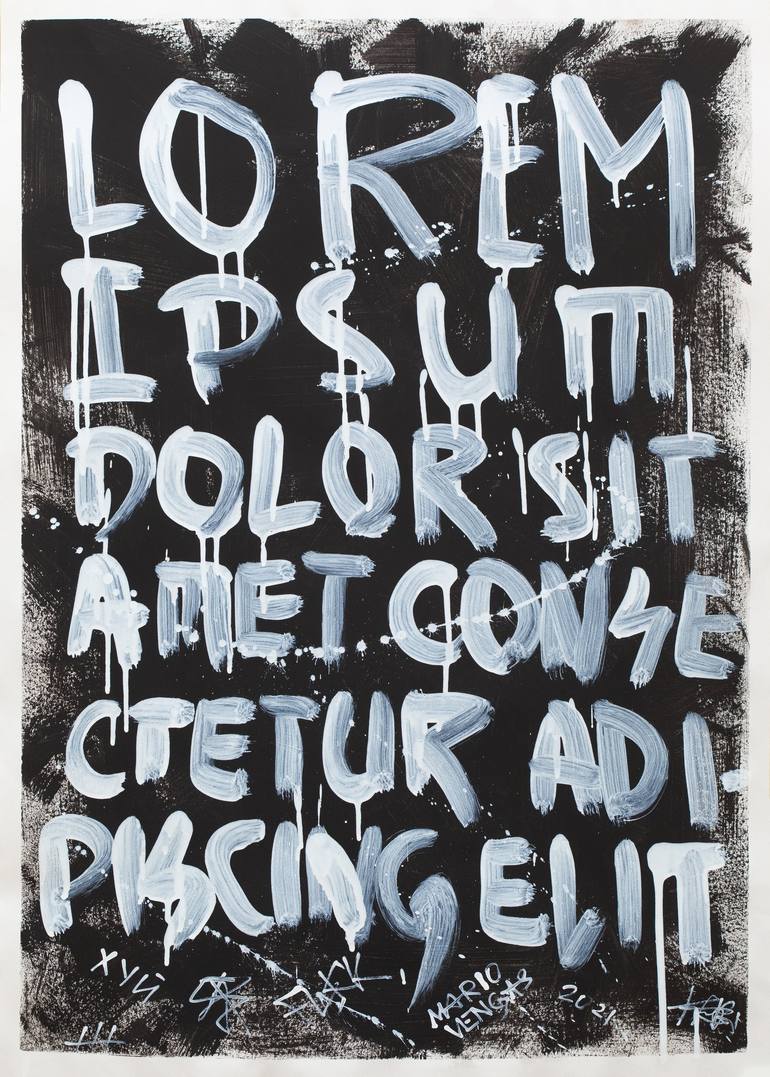 LOREM
IPSUM
DOLOR SIT
AMET CONSE
CTETUR ADI-
PISCING ELIT
ХУЙ
MARIO
VENGAB 2021